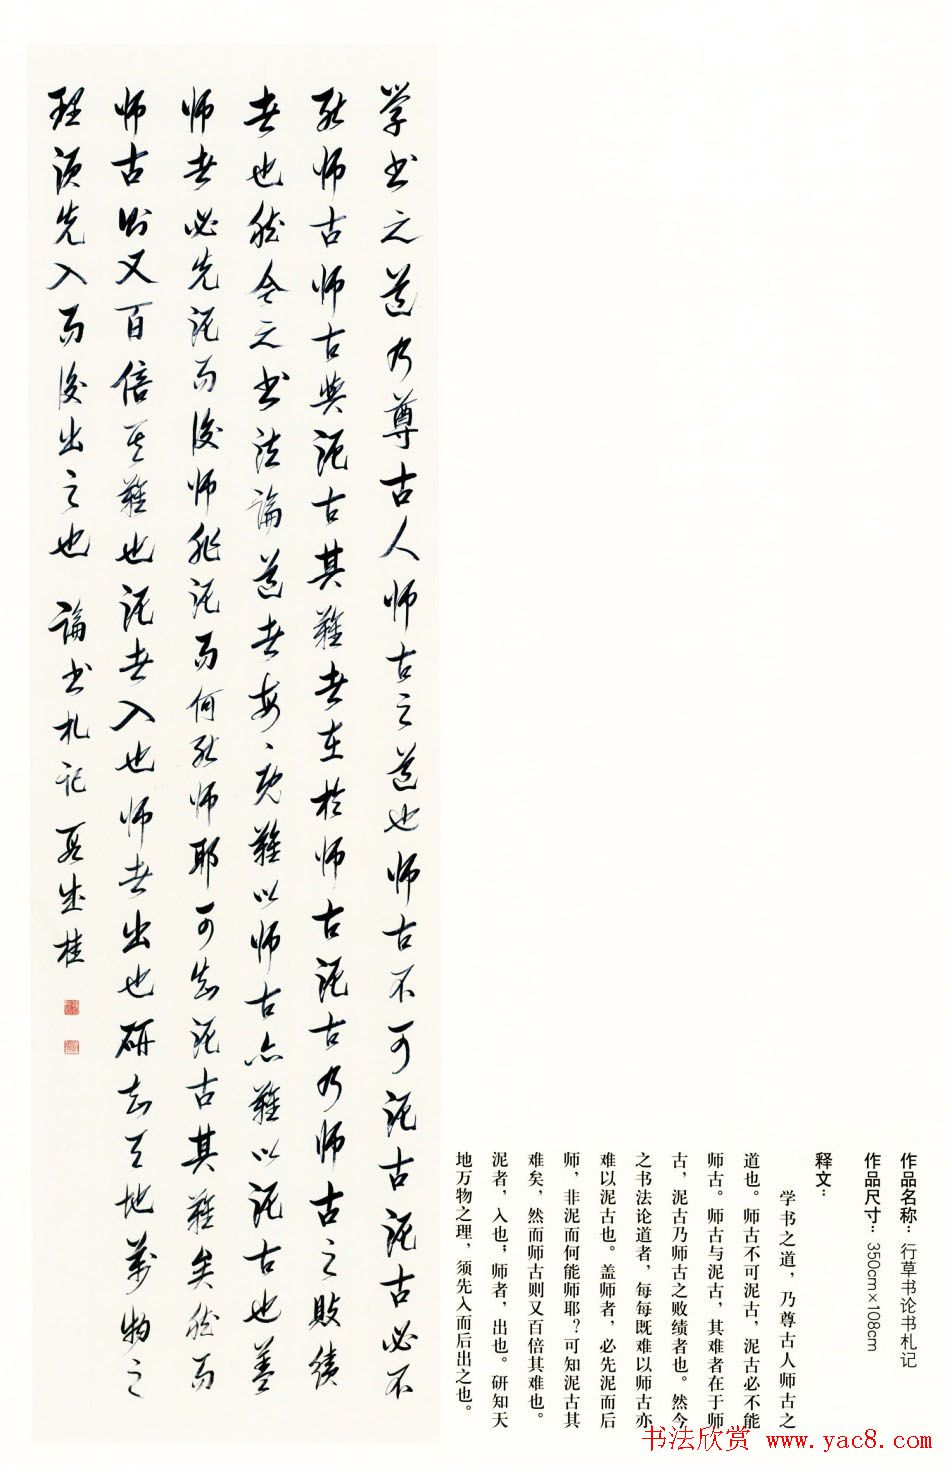 学书之道乃尊古人师古之道也师古不可泥古泥古必不
能师古师古與泥古其難者在於师古泥古乃师古之敗績
者也然今之书法論道者每々既難以师古亦難以泥古也蓋
师者必先泥而後师非泥而何能师耶可知泥古其難矣然而
师古则又百倍其難也泥者入也师者出也研知天地萬物之
理须先入而後出之也 論书札记
作品名称：行草书论书札记
作品尺寸：350cm×108cm
释文：
学书之道，乃尊古人师古之
道也。师古不可泥古，泥古必不能
师古。师古与泥古，其难者在于师
古，泥古乃师古之败绩者也。然今
之书法论道者，每每既难以师古亦
难以泥古也。盖师者，必先泥而后
师，非泥而何能师耶？可知泥古其
难矣，然而师古则又百倍其难也。
泥者，入也；师者，出也。研知天
地万物之理，须先入而后出之也。
书法欣赏 www.yac8.com